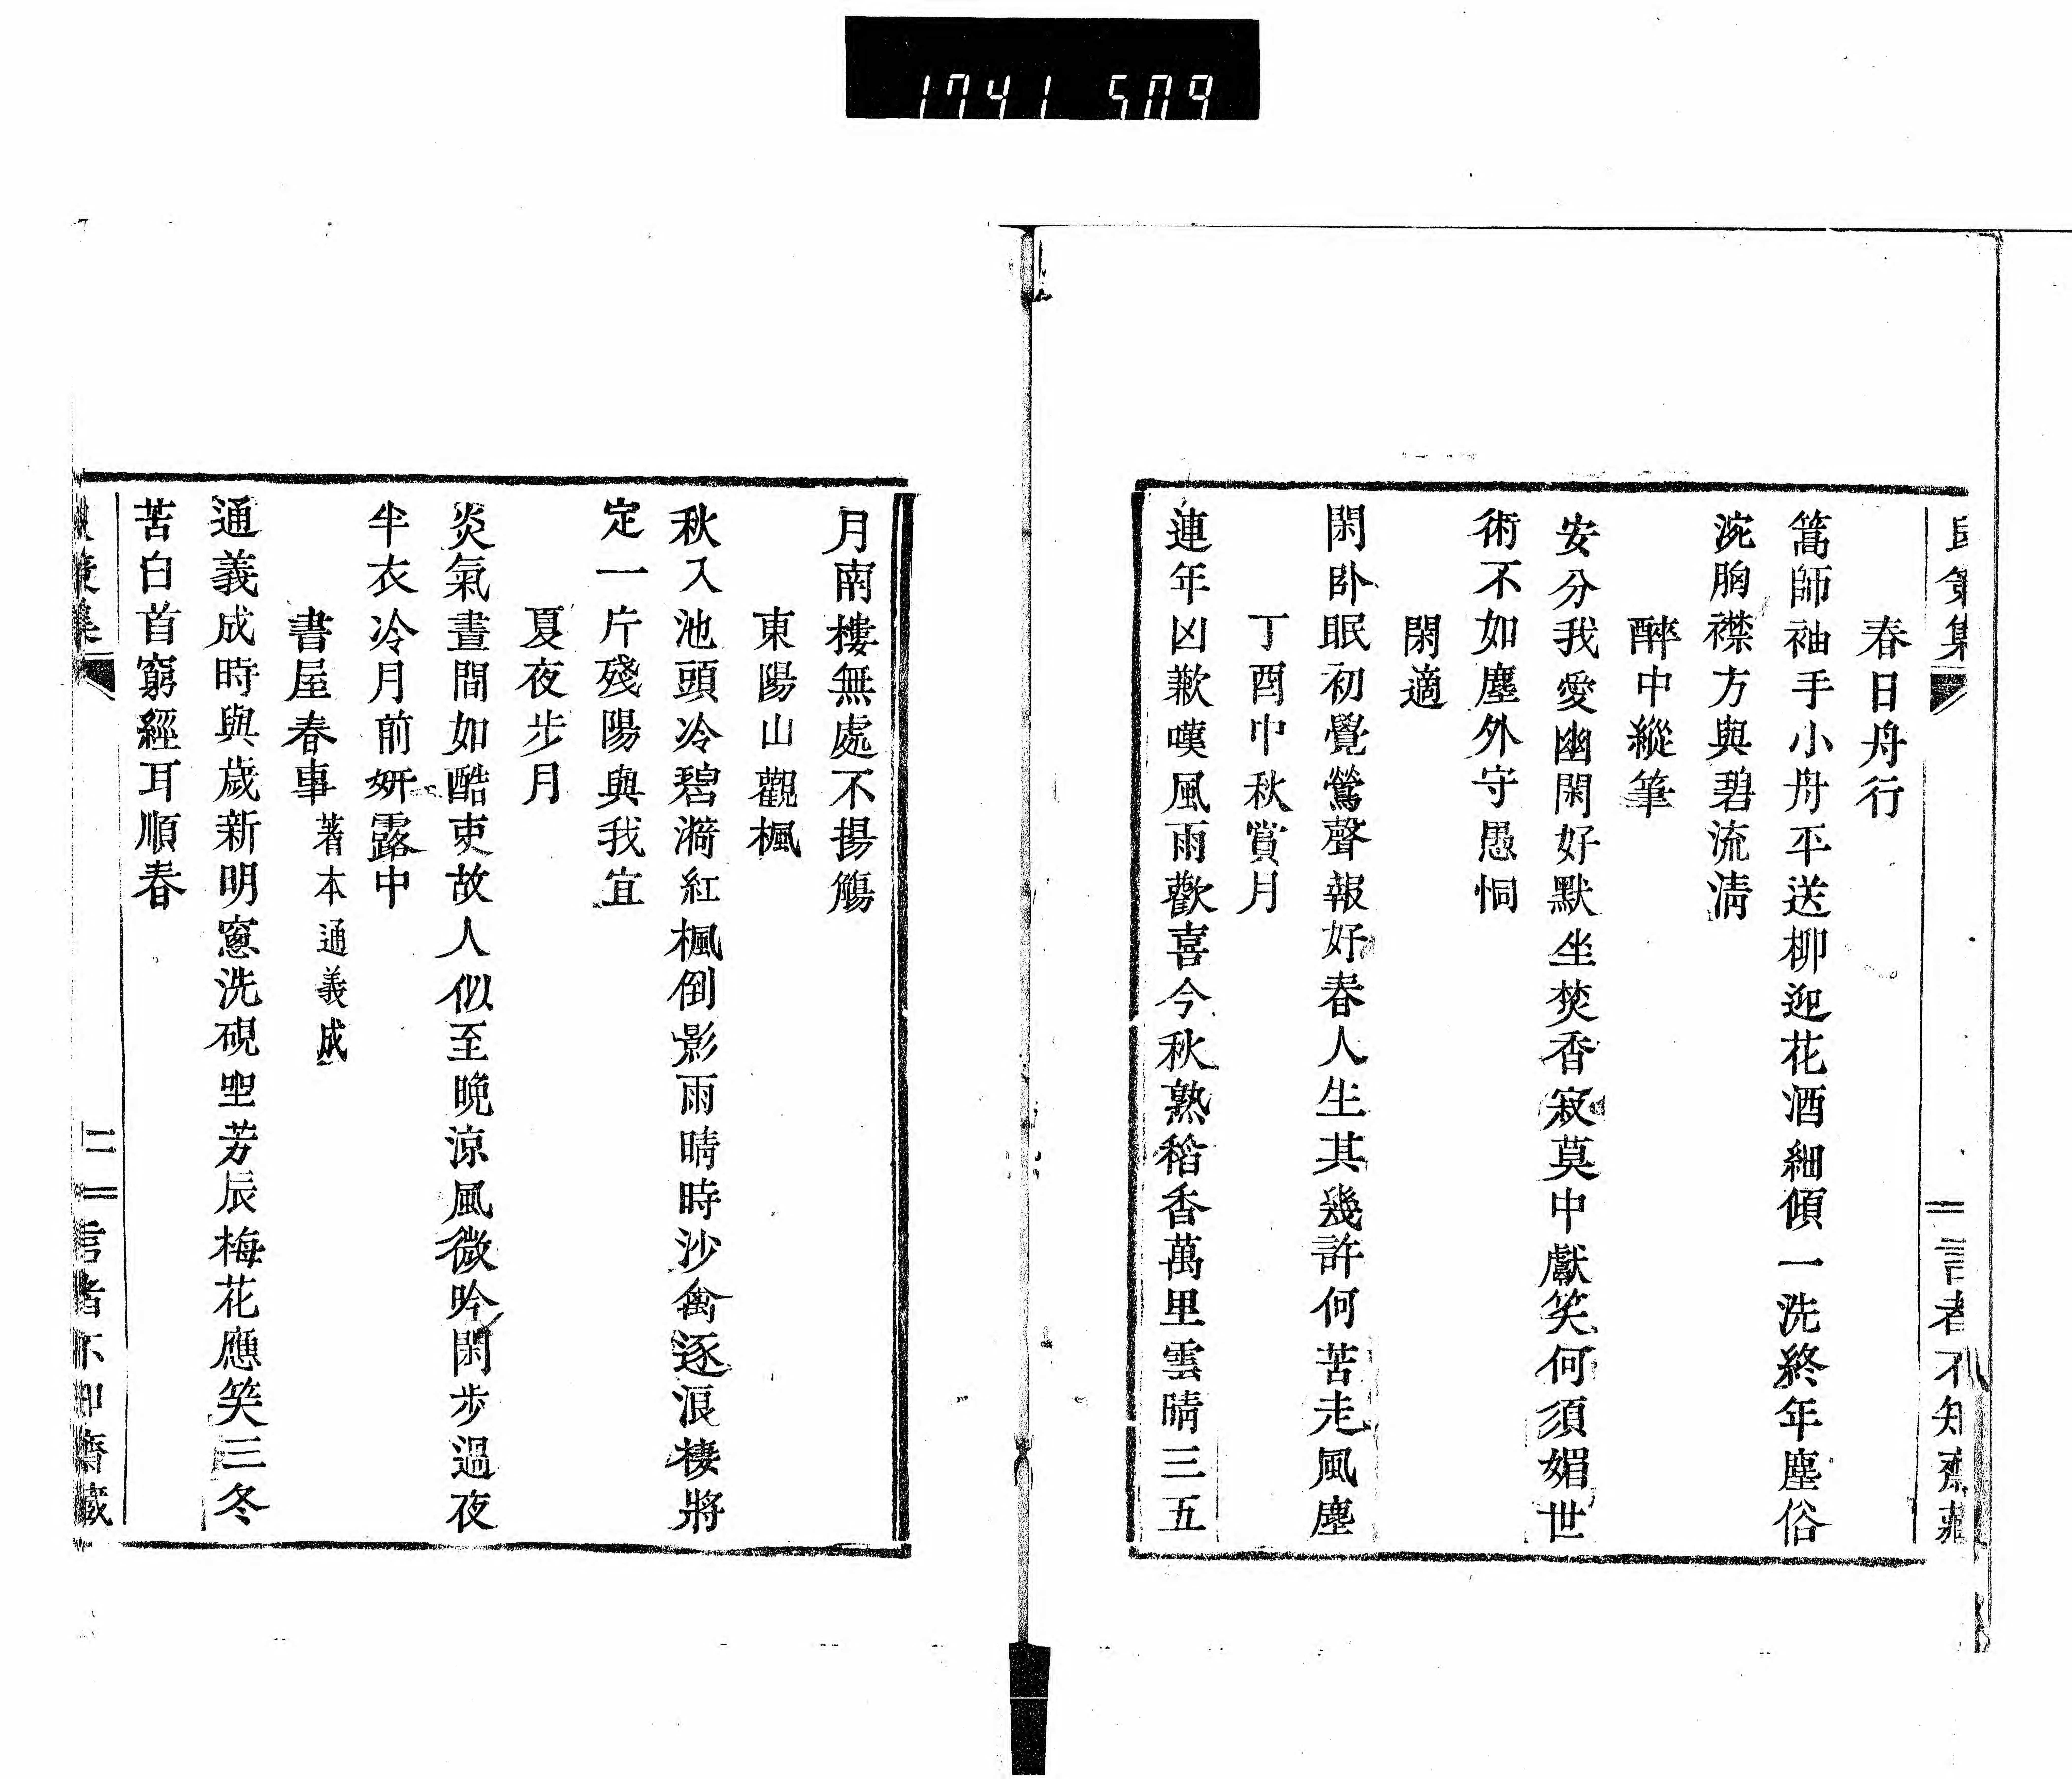 1741 509
集
言者不知齋藏
春日舟行
篙師袖手小舟平送柳迎花酒細傾一洗終年塵俗
涴胸襟方與碧流淸
醉中縱筆
安分我愛幽閑好默坐焚香寂莫中獻笑何須媚世
術不如塵外守愚恫
閑適
閑卧眠初覺鶯聲報好春人生其幾許何苦走風塵
丁酉中秋賞月
連年凶歉嘆風雨歡喜今秋熟稻香萬里雲晴三五
月南樓無處不揚觴
東陽山觀楓
秋入池頭冷碧漪紅楓倒影雨晴時沙禽逐浪棲將
定一片殘陽與我宜
夏夜步月
炎氣晝間如酷吏故人似至晩涼風微吟閑步過夜
半衣冷月前姸露中
書屋春事 著本通義成
通義成時與歲新明窓洗硯聖芳辰梅花應笑三冬
苦白首窮經耳順春
集
二
言者不知齋藏